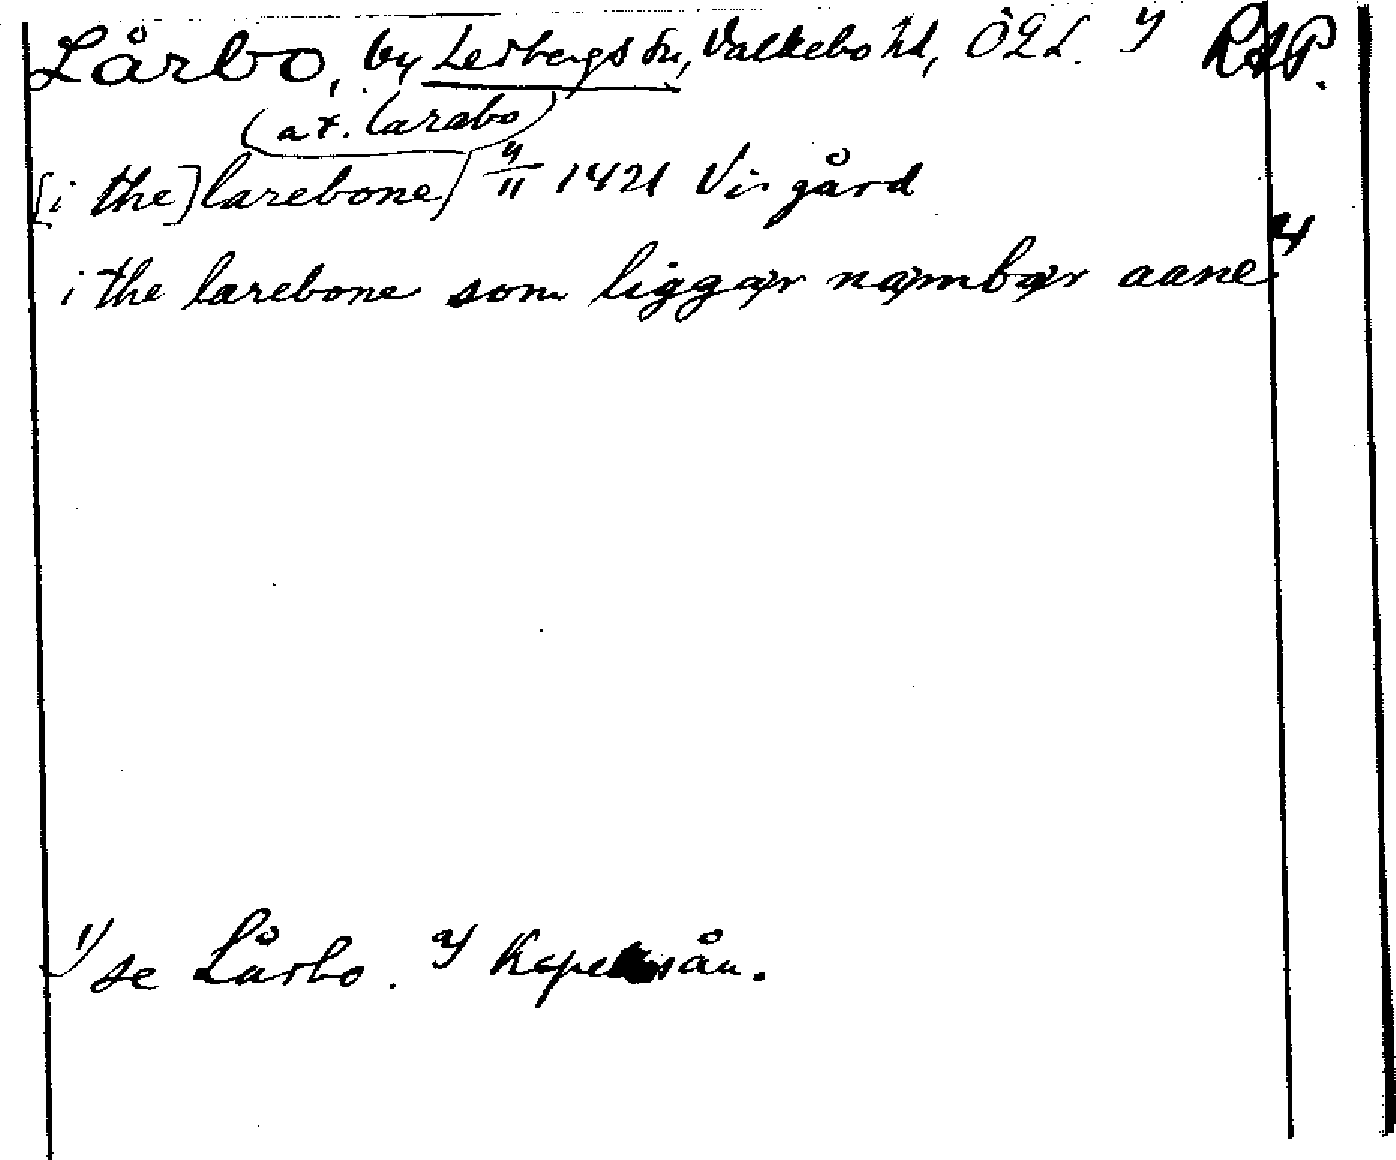 Lårbo, by Ledbergs sn, Valkebo hd, ÖGL. 1) RAP.
(a t. larabo)
[i the] larebone) 4/11 1421 Visgård
i the larebone som liggær næmbær aane 2)
1) se Lårbo. 2) Kapellsån.